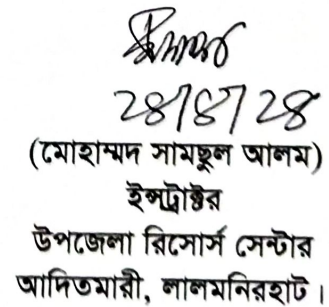 ২৪/৪/২৪
(মোহাম্মদ সামছুল আলম)
ইন্সট্রাক্টর
উপজেলা রিসোর্স সেন্টার
আদিতমারী, লালমনিরহাট।